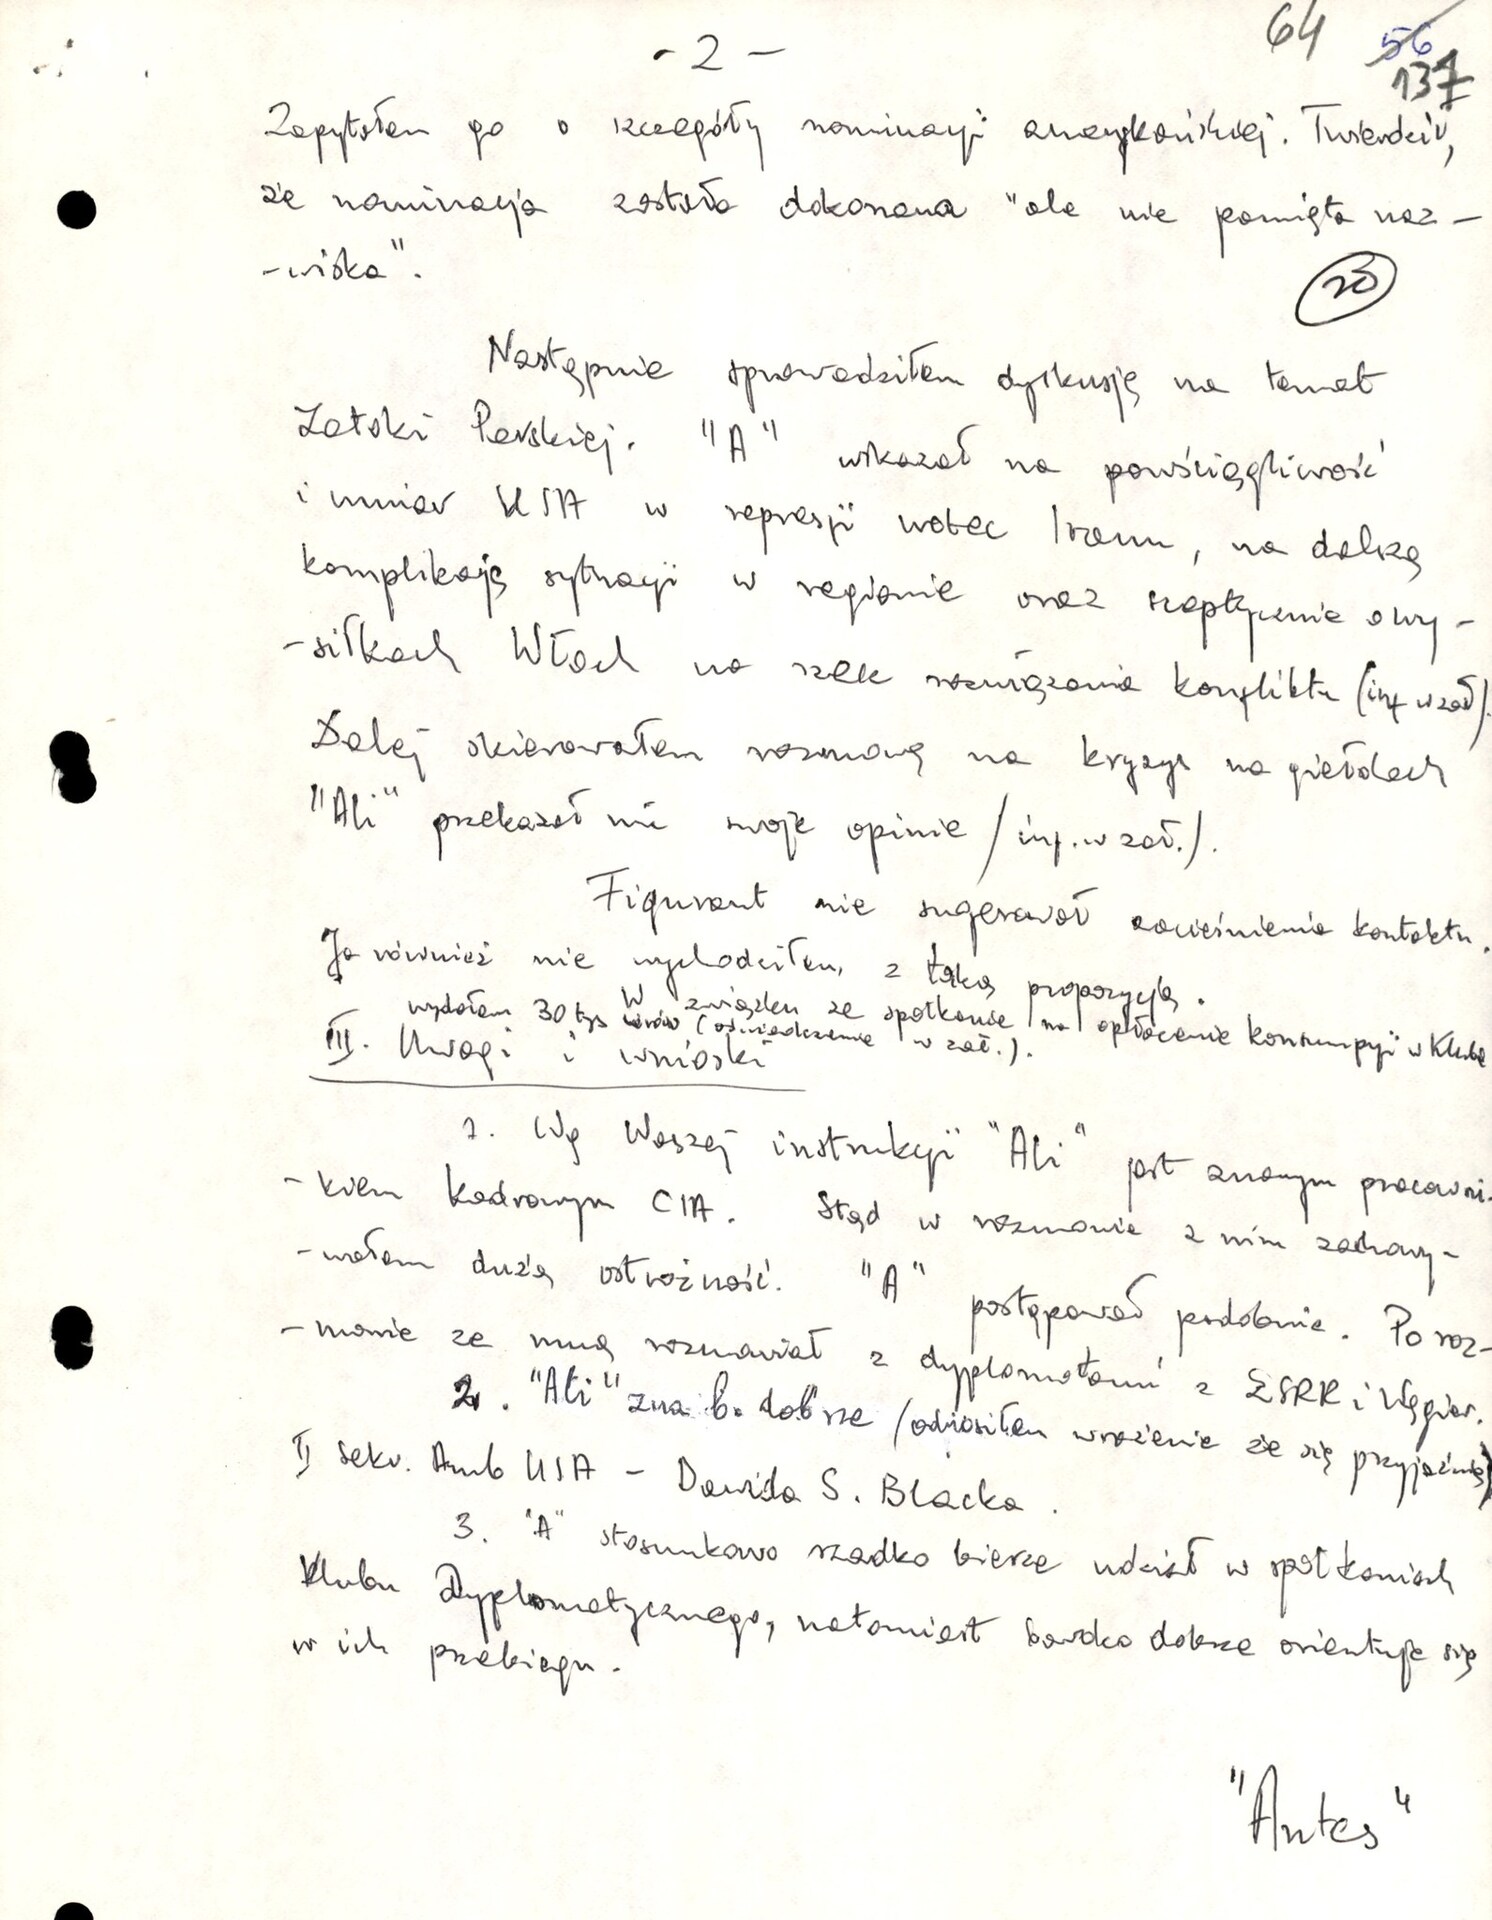 - 2 -
64
56
137
Zapytałem go o szczegóły nominacji amerykańskiej. Twierdził,
że nominacja została dokonana "ale nie pamięta naz-
-wiska".
Następnie sprowadziłem dyskusję na temat
Zatoki Perskiej. "A" wskazał na powściągliwość
i umiar USA w represji wobec Iranu, na dalszą
komplikację sytuacji w regionie oraz sceptycznie o wy-
-siłkach Włoch na rzecz rozwiązania konfliktu (inf w zał).
Dalej skierowałem rozmowę na kryzys na giełdach
"Ali" przekazał mi swoje opinie /inf. w zał./.
Figurant nie sugerował zacieśnienia kontaktu.
Ja również nie wychodziłem z taką propozycją.
W związku ze spotkanie na opłacenie konsumpcji w Klubie
wydałem 30 tys lirów (oświadczenie w zał.).
III. Uwagi i wnioski
1. Wg Waszej instrukcji "Ali" jest znanym pracowni-
-kiem kadrowym CIA. Stąd w rozmowie z nim zachowy-
-wałem dużą ostrożność. "A" postępował podobnie. Po roz-
-mowie ze mną rozmawiał z dyplomatami z ZSRR i Węgier.
2. "Ali" zna b. dobrze (odnosiłem wrażenie że się przyjaźnią)
II sekr. Amb USA - Dawida S. Blacka.
3. "A" stosunkowo rzadko bierze udział w spotkaniach
Klubu Dyplomatycznego, natomiast bardzo dobrze orientuje się
w ich przebiegu.
"Antes"